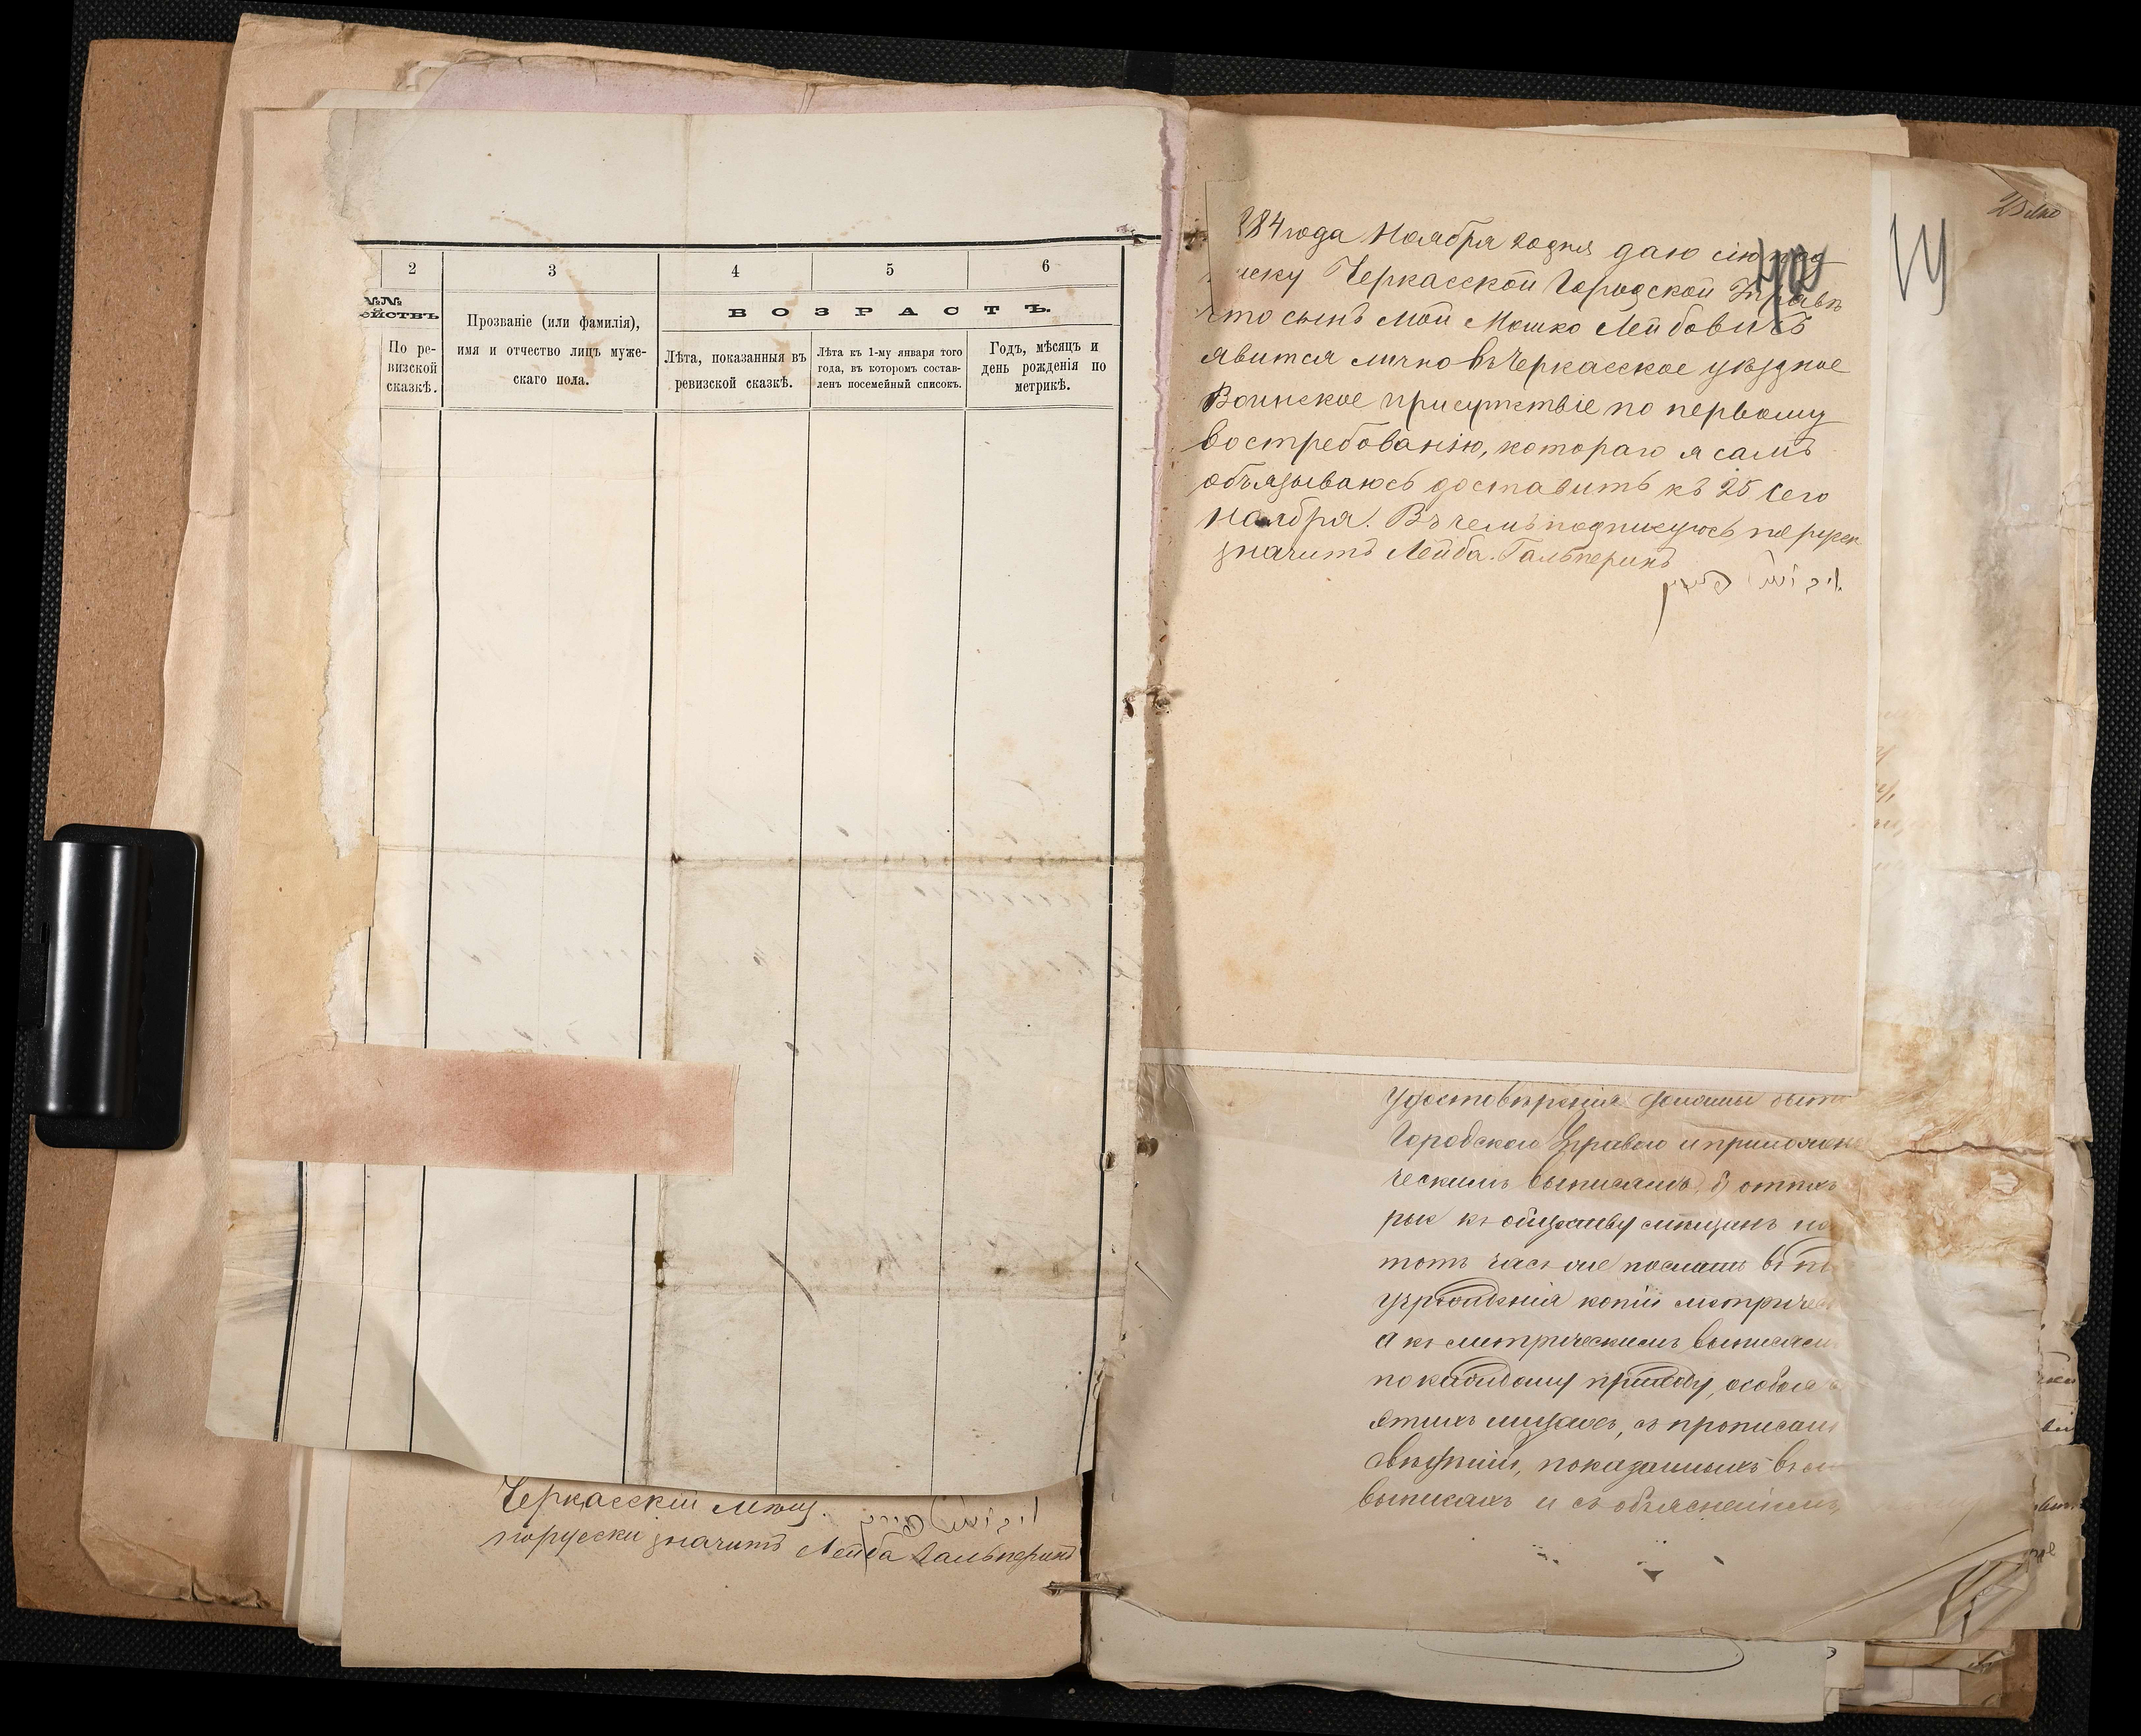 2
3
4
5
6
№№
ействъ
По ре-
визской
сказкѣ.
Прозваніе (или фамилія),
имя и отчество лицъ муже-
скаго пола.
ВОЗРАСТЪ.
Лѣта, показанныя въ
ревизской сказкѣ.
Лѣта къ 1-му января того
года, въ которомъ состав-
ленъ посемейный списокъ.
Годъ, мѣсяцъ и
день рожденія по
метрикѣ.
Черкасскій мѣщ.
порусски значитъ Лейба Гальперинъ
84 года Ноября 20 дня даю сію под
иску Черкасской Городской Управѣ
что сынъ мой Мошко Лейбовичъ
явится лично въ Черкасское уѣздное
Воинское присутствіе по первому
востребованію, котораго я самъ
обязываюсь доставить къ 25 сего
ноября. Въ чемъ подписуюсь
значитъ Лейба Гальперинъ
удостовѣренія должны быть
Городскою Управою и приложен
ческимъ выписямъ, б)
рые къ обществу мѣщанъ не
тотъ часъ же посланы въ
учрежденія копіи метричес
а къ метрическимъ выписям
по каждому приходу, особыя
этихъ лицахъ, съ прописані
свѣдѣній, показанныхъ въ
выписяхъ и съ объясненіемъ,